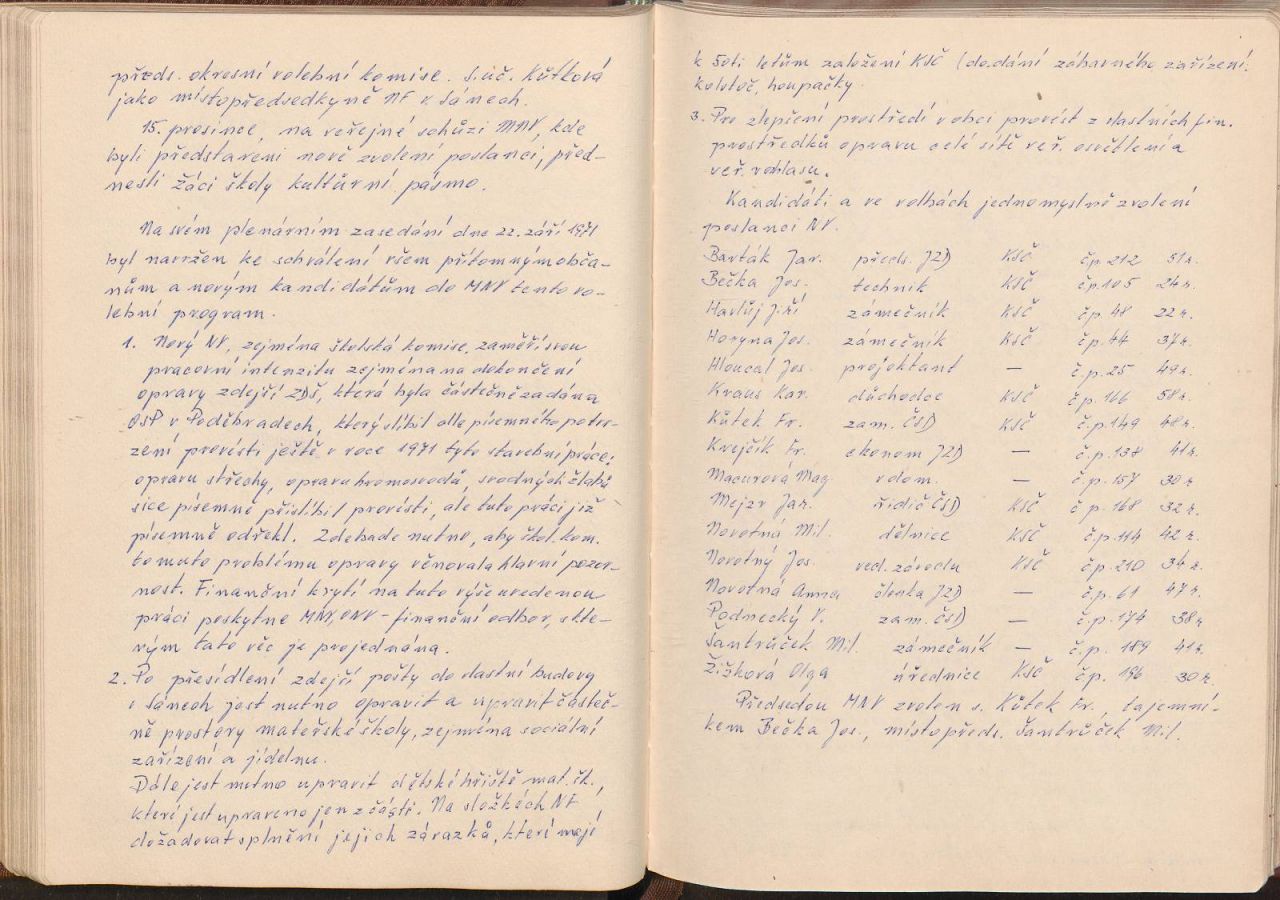 předs. okresní volební komise. s. úč. Kůtková
jako místopředsedkyně NF v Sánech.
15. prosince, na veřejné schůzi MNV, kde
byli představeni nově zvolení poslanci, před-
nesli žáci školy kultůrní pásmo.
Na svém plenárním zasedání dne 22. září 1971
byl navržen ke schválení všem přítomným obča-
nům a novým kandidátům do MNV tento vo-
lební program.
1. Nový NV, zejména školská komise, zaměří svou
pracovní intenzitu zejména na dokončení
opravy zdejší ZDŠ, která byla částečně zadána
OSP v Poděbradech, který slíbil dle písemného potvr-
zení provésti ještě v roce 1971 tyto stavební práce:
opravu střechy, opravu hromosvodů, svodných žlabů
sice písemně přislíbil provésti, ale tuto práci již
písemně odřekl. Zde bude nutno, aby škol. kom.
tomuto problému opravy věnovala hlavní pozor-
nost. Finanční krytí na tuto výše uvedenou
práci poskytne MNV, ONV – finanční odbor, s kte-
rým tato věc je projednána.
2. Po přesídlení zdejší pošty do vlastní budovy
v Sánech jest nutno opravit a upravit částeč-
ně prostory mateřské školy, zejména sociální
zařízení a jídelnu.
Dále jest nutno upravit dětské hřiště mat. šk.,
které jest upraveno jen z části. Na složkách NF
dožadovat splnění jejich závazků, které mají
k 50ti letům založení KSČ (dodání zábavného zařízení:
kolotoč, houpačky
3. Pro zlepšení prostředí v obci provést z vlastních fin.
prostředků opravu celé sítě veř. osvětlení a
veř. rozhlasu.
Kandidáti a ve volbách jednomyslně zvolení
poslanci NV.
Barták Jar. předs. JZD KSČ čp. 212 51 r.
Bečka Jos. technik KSČ čp. 105 24 r.
Havlůj Jiří zámečník KSČ č.p. 48 22 r.
Horyna Jos. zámečník KSČ čp. 44 37 r.
Hloucal Jos. projektant — č.p. 25 49 r.
Kraus Kar. důchodce KSČ č.p. 166 58 r.
Kůtek Fr. zam. ČSD KSČ č.p. 149 48 r.
Krejčík Fr. ekonom JZD — č.p. 138 41 r.
Macurová Mag. v dom. — č.p. 157 30 r
Mejzr Jar. řidič ČSD KSČ č p. 168 32 r.
Novotná Mil. dělnice KSČ č.p. 114 42 r.
Novotný Jos. ved. závodu KSČ č.p. 210 34 r.
Novotná Anna členka JZD — č.p. 61 47 r.
Podnecký V. zam. ČSD — č.p. 174 38 r
Šantrůček Mil. zámečník — č.p. 189 41 r.
Žižková Olga úřednice KSČ čp. 196 30 r.
Předsedou MNV zvolen s. Kůtek Fr., tajemní-
kem Bečka Jos., místopředs. Šantrůček Mil.